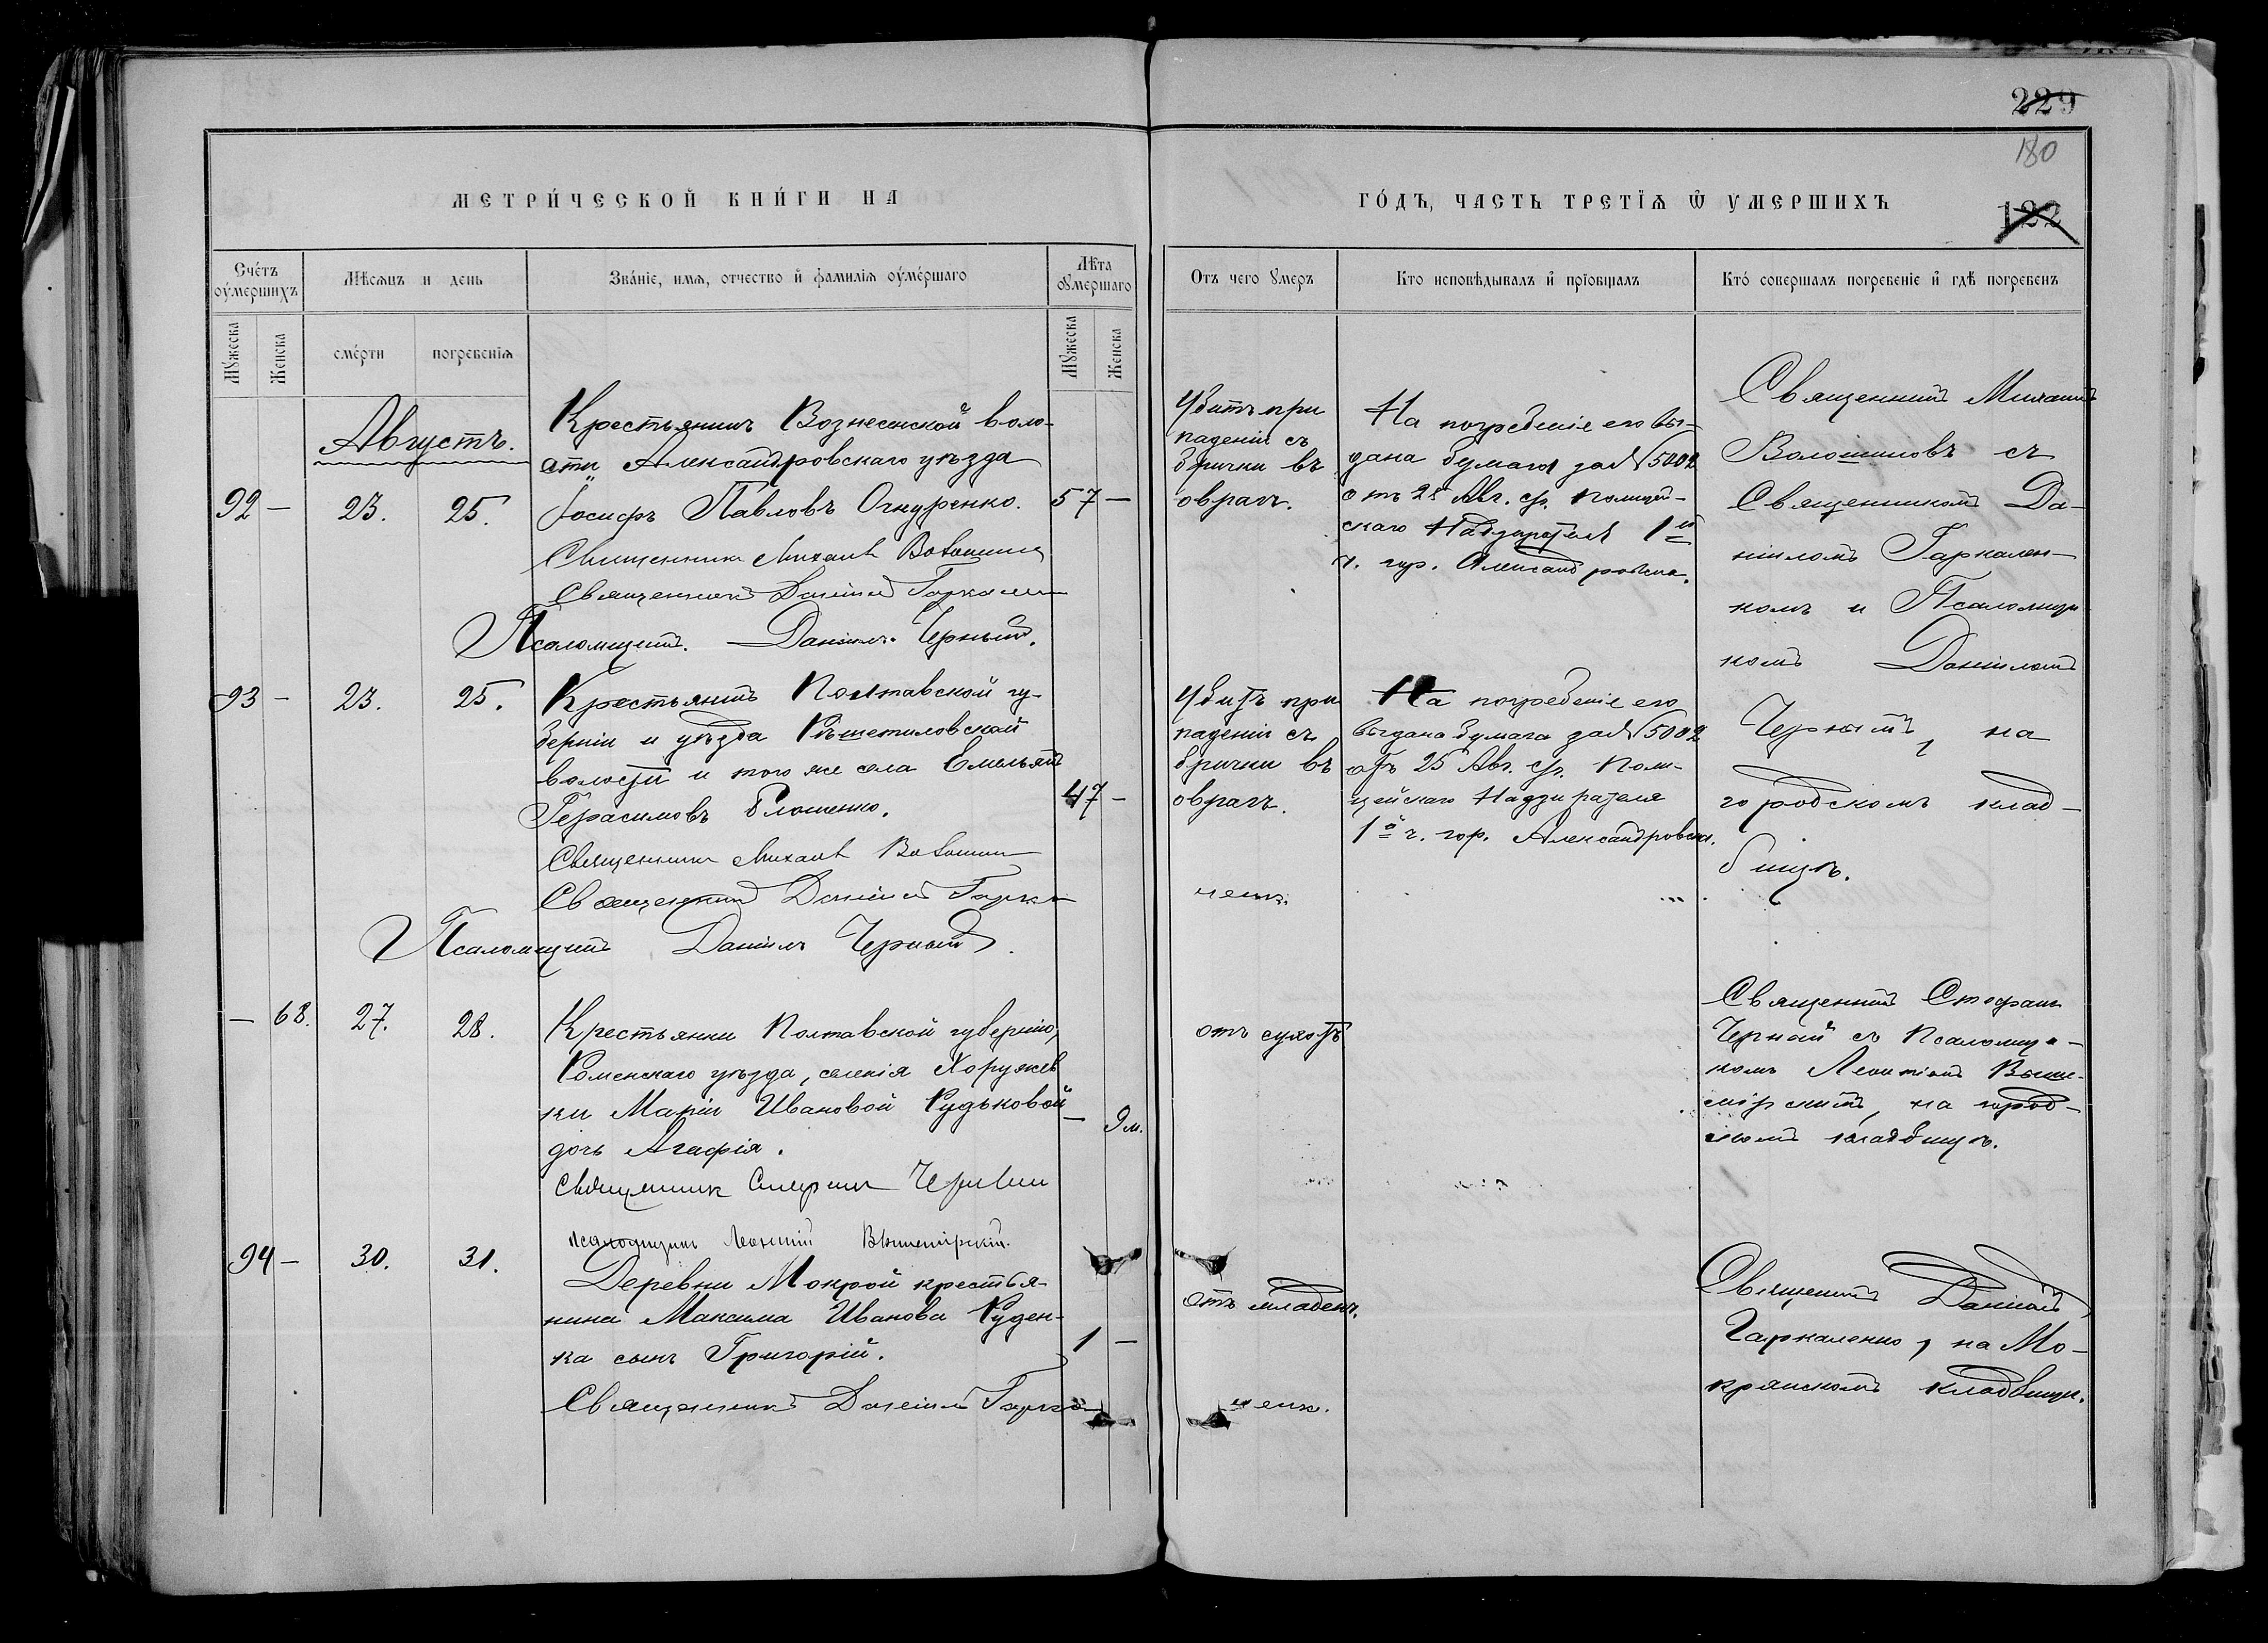 229
180
122
МЕТРИ́ЧЕСКОЙ КНИ́ГИ НА
ГО́ДЪ, ЧАСТЬ ТРЕТІѦ Ѿ УМЕРШИХЪ
Сче́тъ оу́мершихъ
Мѣсяцъ и день
Зва́ніе, имя, отчество и҆ фамилія оу́ме́ршаго
Лѣта оу́мершаго
Мꙋжеска
Женска
сме́рти
погребенія
Мꙋжеска
Женска
Отъ чего ꙋмеръ
Кто исповѣдывалъ и҆ прїобщалъ
Кто́ совершалъ погребеніе и҆ гдѣ погребенъ
Августъ.
92 – 23. 25.
Крестьянинъ Вознесенской воло-
сти Александровскаго уѣзда
Іосифъ Павловъ Огнуренко.
57 –
Священникъ Михаилъ Волошинъ
Священникъ Даніилъ Гаркален
Псаломщикъ. Даніилъ Черный.
Убитъ при
паденіи съ
брички въ
оврагъ.
На погребеніе его вы-
дана бумага за № 5002
отъ 25 Авг. с/г. Полицей-
скаго Надзирателя 1й
ч. гор. Александровска.
Священникъ Михаилъ
Волошиновъ съ
Священникомъ Да-
ніиломъ Гаркален-
комъ и Псаломщи-
комъ Даніиломъ
Чернымъ, на
городскомъ клад-
бищѣ.
93 – 23. 25.
Крестьянинъ Полтавской гу-
берніи и уѣзда Рѣшетиловской
волости и того же села Емельянъ
Герасимовъ
47 –
Священникъ Михаилъ Волошин
Священникъ Даніилъ Гарка
Псаломщикъ Даніилъ Черный.
Убитъ при
паденіи съ
брички въ
оврагъ.
На погребеніе его
выдана бумага за № 5002
отъ 25 Авг. с/г. Поли-
цейскаго Надзирателя
1й ч. гор. Александровск.
– 68. 27. 28.
Крестьянки Полтавской губерніи,
Роменскаго уѣзда, селенія Хоружев
ки Маріи Ивановой Рудьковой
дочь Агафія.
– 9 м.
Священникъ Стефанъ Черный
псаломщикъ Леонтій Вышемірскій.
отъ сухотъ
Священникъ Стефанъ
Черный съ Псаломщи-
комъ Леонтіемъ Выше-
мірскимъ, на город-
скомъ кладбищѣ.
94 – 30. 31.
Деревни Мокрой крестья-
нина Максима Иванова Руден-
ка сынъ Григорій.
1 –
Священникъ Даніилъ Гарка
отъ младенч.
Священникъ Даніилъ
Гаркаленко, на Мо-
крянскомъ кладбищѣ.